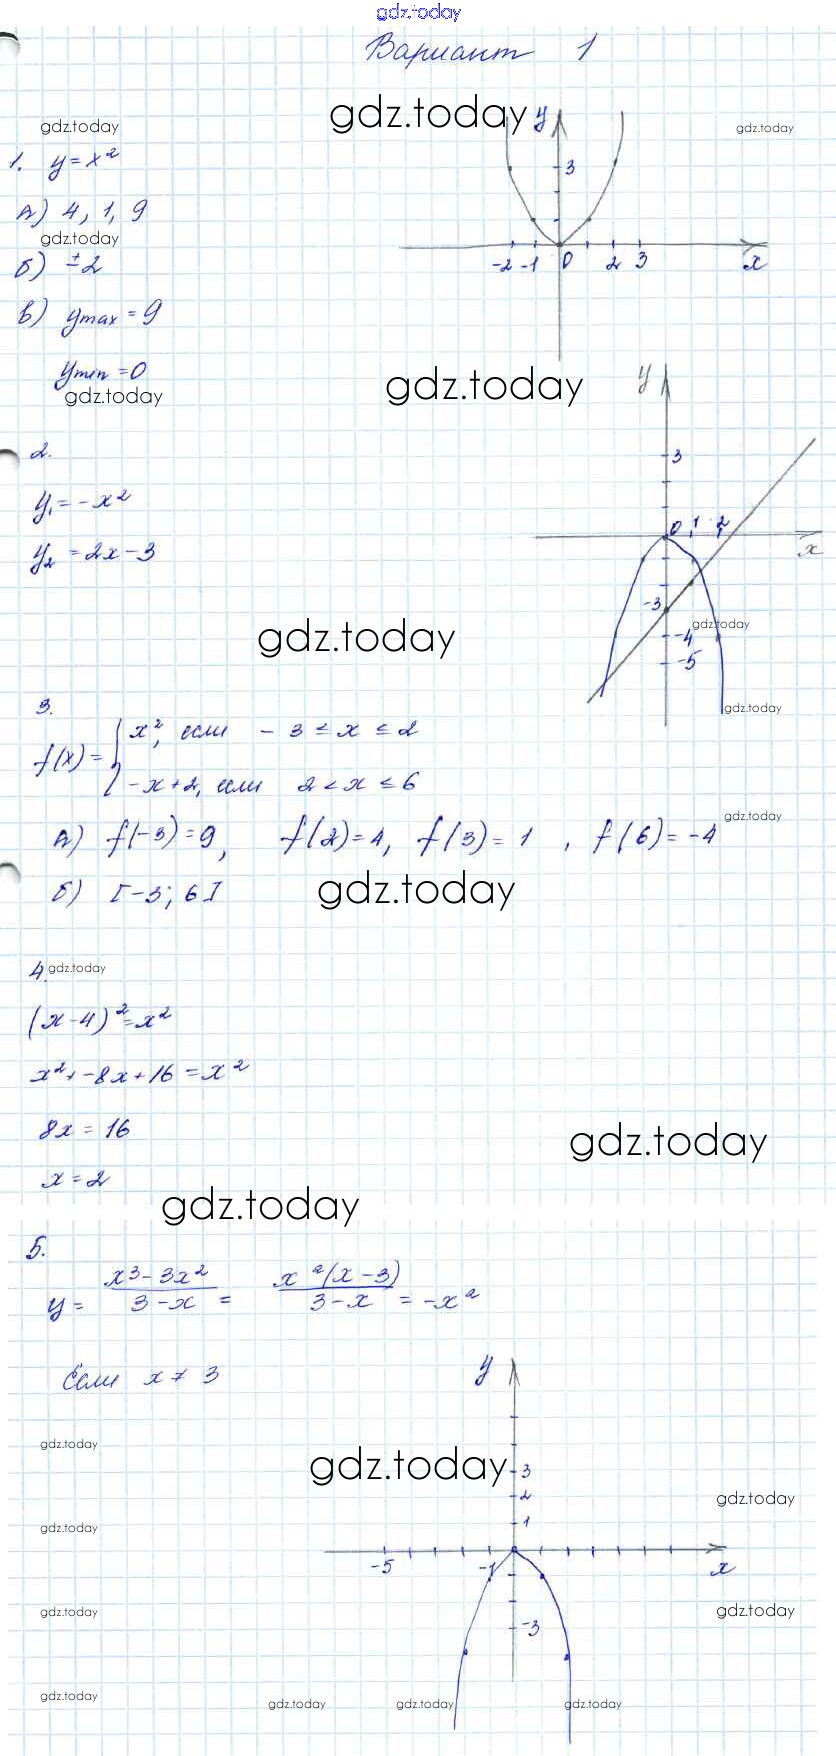 gdz.today
Вариант 1
gdz.today
gdz.today
gdz.today
1. y = x²
а) 4, 1, 9
gdz.today
б) ±2
в) ymax = 9
ymin = 0
gdz.today
y
3
-2 -1 0 2 3 x
gdz.today
y
3
0 1 2
x
-3
-4
-5
gdz.today
gdz.today
2.
y₁ = -x²
y₂ = 2x - 3
gdz.today
3.
f(x) = { x², если - 3 ≤ x ≤ 2
-x+2, если 2 < x ≤ 6
gdz.today
а) f(-3) = 9, f(2) = 4, f(3) = 1 , f(6) = -4
б) [-3; 6]
gdz.today
4.
gdz.today
(x-4)² = x²
x² + -8x + 16 = x²
8x = 16
gdz.today
x = 2
gdz.today
5.
y = \frac{x³ - 3x²}{3 - x} = \frac{x²(x - 3)}{3 - x} = -x²
Если x ≠ 3
y
gdz.today
gdz.today
3
2
gdz.today
1
gdz.today
-5 -1 x
gdz.today
gdz.today
-3
gdz.today
gdz.today
gdz.today
gdz.today